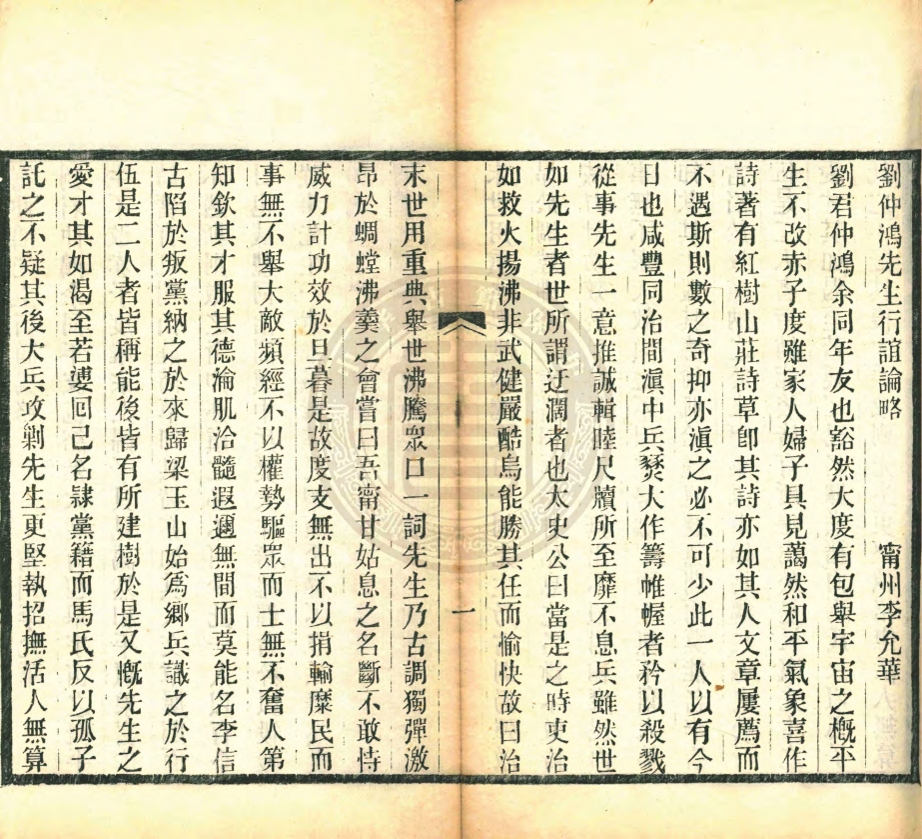 劉仲鴻先生行誼論略　甯州李允華
劉君仲鴻余同年友也豁然大度有包舉宇宙之概平
生不改赤子度雖家人婦子具見藹然和平氣象喜作
詩著有紅樹山莊詩草卽其詩亦如其人文章屢薦而
不遇斯則數之奇抑亦滇之必不可少此一人以有今
日也咸豐同治間滇中兵燹大作籌帷幄者矜以殺戮
從事先生一意推誠輯睦尺牘所至靡不息兵雖然世
如先生者世所謂迂濶者也太史公曰當是之時吏治
如救火揚沸非武健嚴酷烏能勝其任而愉快故曰治
一
末世用重典舉世沸騰眾口一詞先生乃古調獨彈激
昂於蜩螗沸羹之會嘗曰吾甯甘姑息之名斷不敢恃
威力計功效於旦暮是故度支無出不以捐輸糜民而
事無不舉大敵頻經不以權勢驅眾而士無不奮人第
知欽其才服其德淪肌洽髓遐邇無間而莫能名李信
古陷於叛黨納之於來歸梁玉山始爲鄉兵識之於行
伍是二人者皆稱能後皆有所建樹於是又慨先生之
愛才其如渴至若婆囘己名隸黨籍而馬氏反以孤子
託之不疑其後大兵攻剿先生更堅執招撫活人無算